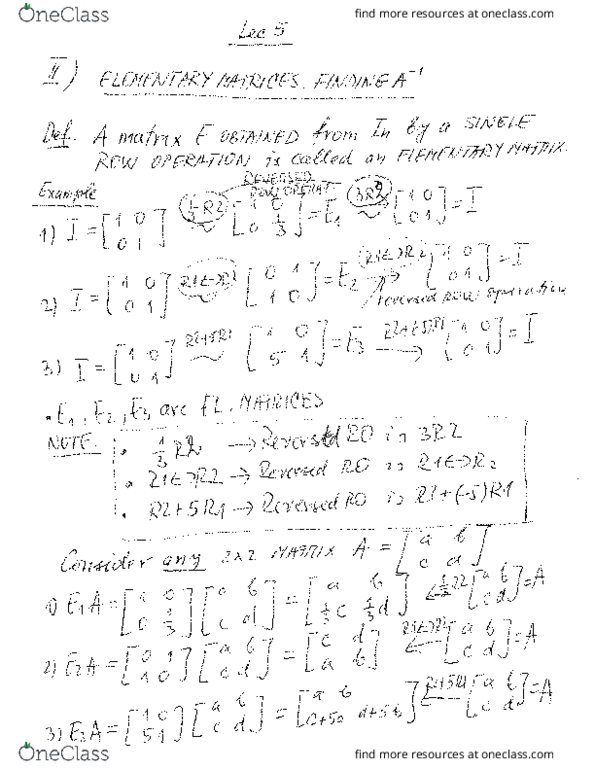 OneClass
find more resources at oneclass.com
Lec 5
II) ELEMENTARY MATRICES. FINDING A⁻¹
Def. A matrix E OBTAINED from In by a SINGLE
ROW OPERATION is called an ELEMENTARY MATRIX.
REVERSED
ROW OPERAT
Example
1) I = [1 0; 0 1] 1/3 R2 ~ [1 0; 0 1/3] = E₁ 3R2 ~ [1 0; 0 1] = I
2) I = [1 0; 0 1] R1↔R2 ~ [0 1; 1 0] = E₂ R1↔R2 → [1 0; 0 1] = I
reversed ROW operation
3) I = [1 0; 0 1] R2+5R1 ~ [1 0; 5 1] = E₃ → [1 0; 0 1] = I
• E₁, E₂, E₃ are EL. MATRICES
NOTE.
• 1/3 R2 → Reversed RO is 3R2
• R1↔R2 → Reversed RO is R1↔R2
• R2+5R1 → Reversed RO is R2+(-5)R1
Consider any 2x2 MATRIX A = [a b; c d]
1) E₁A = [1 0; 0 1/3] [a b; c d] = [a b; 1/3c 1/3d] ← 1/3 R2 [a b; c d] = A
2) E₂A = [0 1; 1 0] [a b; c d] = [c d; a b] ← R1↔R2 [a b; c d] = A
3) E₃A = [1 0; 5 1] [a b; c d] = [a b; c+5a d+5b] ← R2+5R1 [a b; c d] = A
OneClass
find more resources at oneclass.com